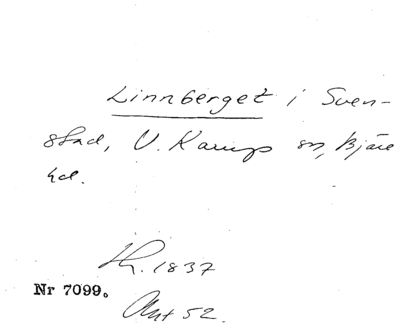 Linnberget i Sven-
stad, V. Karup sn, Bjäre
hd.
Lk. 1837
Nr 7099.
Akt 52.